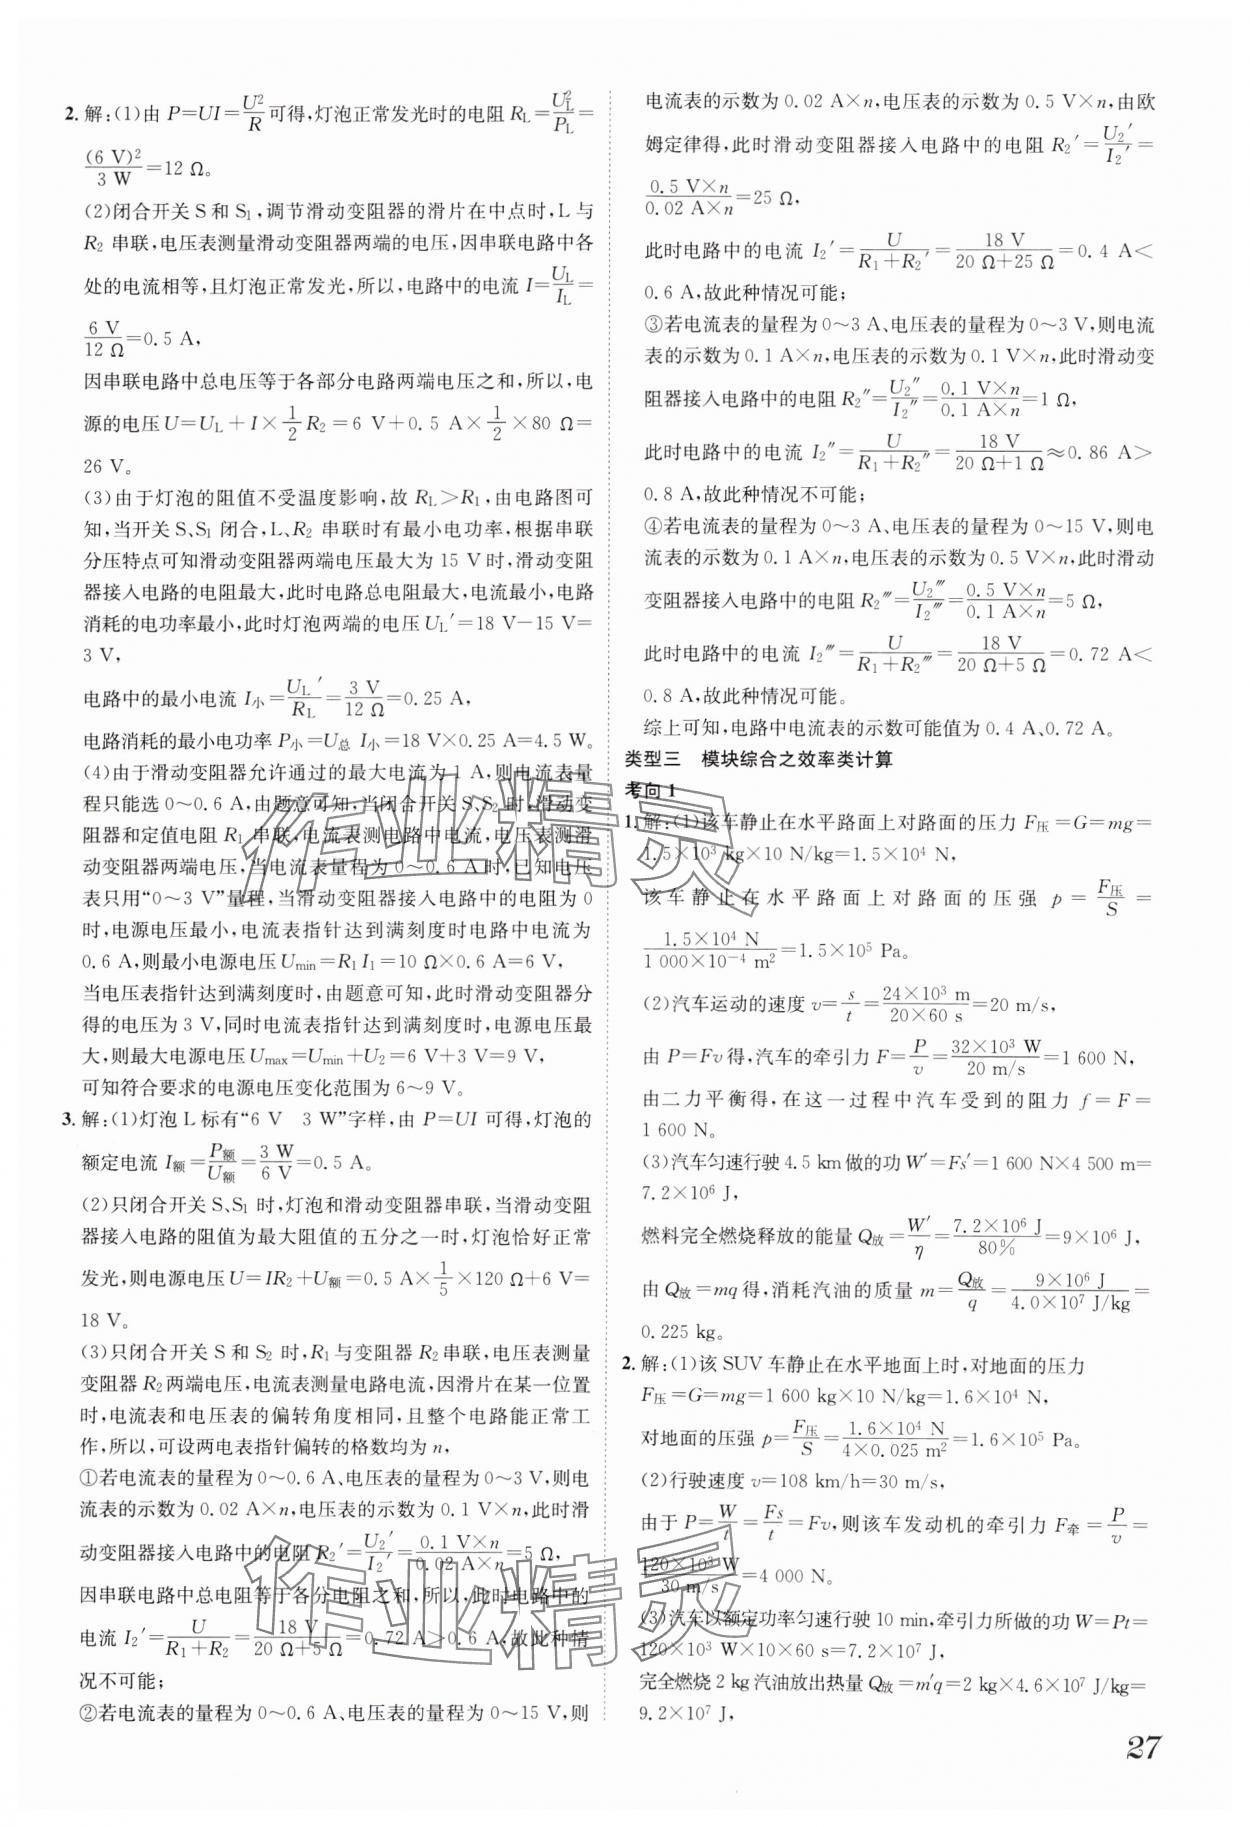 2. 解:(1)由 P=UI=U²/R 可得,灯泡正常发光时的电阻 R_L=U_L²/P_L=
(6 V)²/3 W=12 Ω。
(2)闭合开关 S 和 S₁,调节滑动变阻器的滑片在中点时,L 与
R₂ 串联,电压表测量滑动变阻器两端的电压,因串联电路中各
处的电流相等,且灯泡正常发光,所以,电路中的电流 I=U_L/I_L=
6 V/12 Ω=0.5 A,
因串联电路中总电压等于各部分电路两端电压之和,所以,电
源的电压 U=U_L+I×1/2 R₂=6 V+0.5 A×1/2×80 Ω=
26 V。
(3)由于灯泡的阻值不受温度影响,故 R_L>R₁,由电路图可
知,当开关 S、S₁ 闭合,L、R₂ 串联时有最小电功率,根据串联
分压特点可知滑动变阻器两端电压最大为 15 V 时,滑动变阻
器接入电路的电阻最大,此时电路总电阻最大,电流最小,电路
消耗的电功率最小,此时灯泡两端的电压 U_L′=18 V-15 V=
3 V,
电路中的最小电流 I小=U_L′/R_L=3 V/12 Ω=0.25 A,
电路消耗的最小电功率 P小=U总 I小=18 V×0.25 A=4.5 W。
(4)由于滑动变阻器允许通过的最大电流为 1 A,则电流表量
程只能选 0~0.6 A,由题意可知,当闭合开关 S、S₂ 时,滑动变
阻器和定值电阻 R₁ 串联,电流表测电路中电流,电压表测滑
动变阻器两端电压,当电流表量程为 0~0.6 A 时,已知电压
表只用“0~3 V”量程,当滑动变阻器接入电路中的电阻为 0
时,电源电压最小,电流表指针达到满刻度时电路中电流为
0.6 A,则最小电源电压 Umin=R₁I₁=10 Ω×0.6 A=6 V,
当电压表指针达到满刻度时,由题意可知,此时滑动变阻器分
得的电压为 3 V,同时电流表指针达到满刻度时,电源电压最
大,则最大电源电压 Umax=Umin+U₂=6 V+3 V=9 V,
可知符合要求的电源电压变化范围为 6~9 V。
3. 解:(1)灯泡 L 标有“6 V 3 W”字样,由 P=UI 可得,灯泡的
额定电流 I额=P额/U额=3 W/6 V=0.5 A。
(2)只闭合开关 S、S₁ 时,灯泡和滑动变阻器串联,当滑动变
阻器接入电路的阻值为最大阻值的五分之一时,灯泡恰好正常
发光,则电源电压 U=IR₂+U额=0.5 A×1/5×120 Ω+6 V=
18 V。
(3)只闭合开关 S 和 S₂ 时,R₁与变阻器 R₂串联,电压表测量
变阻器 R₂两端电压,电流表测量电路电流,因滑片在某一位置
时,电流表和电压表的偏转角度相同,且整个电路能正常工
作,所以,可设两电表指针偏转的格数均为 n,
①若电流表的量程为 0~0.6 A、电压表的量程为 0~3 V,则电
流表的示数为 0.02 A×n,电压表的示数为 0.1 V×n,此时滑
动变阻器接入电路中的电阻 R₂′=U₂′/I₂′=0.1 V×n/0.02 A×n=5 Ω,
因串联电路中总电阻等于各分电阻之和,所以,此时电路中的
电流 I₂′=U/R₁+R₂=18 V/20 Ω+5 Ω=0.72 A>0.6 A,故此种情
况不可能;
②若电流表的量程为 0~0.6 A、电压表的量程为 0~15 V,则
电流表的示数为 0.02 A×n,电压表的示数为 0.5 V×n,由欧
姆定律得,此时滑动变阻器接入电路中的电阻 R₂′=U₂′/I₂′=
0.5 V×n/0.02 A×n=25 Ω,
此时电路中的电流 I₂′=U/R₁+R₂′=18 V/20 Ω+25 Ω=0.4 A<
0.6 A,故此种情况可能;
③若电流表的量程为 0~3 A、电压表的量程为 0~3 V,则电流
表的示数为 0.1 A×n,电压表的示数为 0.1 V×n,此时滑动变
阻器接入电路中的电阻 R₂″=U₂″/I₂″=0.1 V×n/0.1 A×n=1 Ω,
此时电路中的电流 I₂″=U/R₁+R₂″=18 V/20 Ω+1 Ω≈0.86 A>
0.8 A,故此种情况不可能;
④若电流表的量程为 0~3 A、电压表的量程为 0~15 V,则电
流表的示数为 0.1 A×n,电压表的示数为 0.5 V×n,此时滑动
变阻器接入电路中的电阻 R₂‴=U₂‴/I₂‴=0.5 V×n/0.1 A×n=5 Ω,
此时电路中的电流 I₂‴=U/R₁+R₂‴=18 V/20 Ω+5 Ω=0.72 A<
0.8 A,故此种情况可能。
综上可知,电路中电流表的示数可能值为 0.4 A、0.72 A。
类型三 模块综合之效率类计算
考向 1
1. 解:(1)该车静止在水平路面上对路面的压力 F压=G=mg=
1.5×10³ kg×10 N/kg=1.5×10⁴ N,
该车静止在水平路面上对路面的压强 p=F压/S=
1.5×10⁴ N/1 000×10⁻⁴ m²=1.5×10⁵ Pa。
(2)汽车运动的速度 v=s/t=24×10³ m/20×60 s=20 m/s,
由 P=Fv 得,汽车的牵引力 F=P/v=32×10³ W/20 m/s=1 600 N,
由二力平衡得,在这一过程中汽车受到的阻力 f=F=
1 600 N。
(3)汽车匀速行驶 4.5 km 做的功 W′=Fs′=1 600 N×4 500 m=
7.2×10⁶ J,
燃料完全燃烧释放的能量 Q放=W′/η=7.2×10⁶ J/80%=9×10⁶ J,
由 Q放=mq 得,消耗汽油的质量 m=Q放/q=9×10⁶ J/4.0×10⁷ J/kg=
0.225 kg。
2. 解:(1)该 SUV 车静止在水平地面上时,对地面的压力
F压=G=mg=1 600 kg×10 N/kg=1.6×10⁴ N,
对地面的压强 p=F压/S=1.6×10⁴ N/4×0.025 m²=1.6×10⁵ Pa。
(2)行驶速度 v=108 km/h=30 m/s,
由于 P=W/t=Fs/t=Fv,则该车发动机的牵引力 F牵=P/v=
120×10³ W/30 m/s=4 000 N。
(3)汽车以额定功率匀速行驶 10 min,牵引力所做的功 W=Pt=
120×10³ W×10×60 s=7.2×10⁷ J,
完全燃烧 2 kg 汽油放出热量 Q放=m′q=2 kg×4.6×10⁷ J/kg=
9.2×10⁷ J,
27
作业精灵
作业精灵